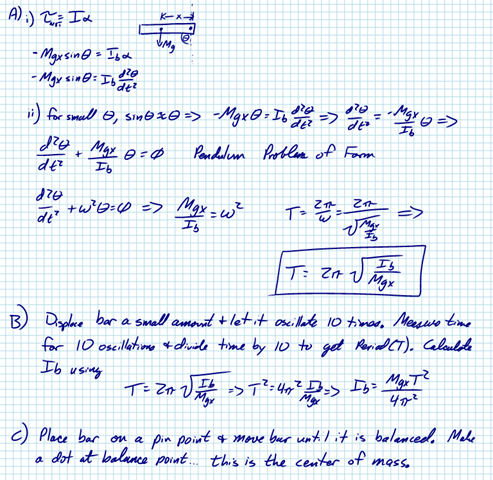 A) i) τnet = Iα
K- x -→
Mg
θ
-Mgx sinθ = I_b α
-Mgx sinθ = I_b d²θ/dt²
ii) for small θ, sinθ≈θ => -Mgxθ = I_b d²θ/dt² => d²θ/dt² = -Mgx/I_b θ =>
d²θ/dt² + Mgx/I_b θ = φ Pendulum Problem of Form
d²θ/dt² + ω²θ = φ => Mgx/I_b = ω² T = 2π/ω = 2π/√(Mgx/I_b) =>
T = 2π √(I_b/Mgx)
B) Displace bar a small amount & let it oscillate 10 times. Measure time
for 10 oscillations & divide time by 10 to get Period (T). Calculate
I_b using
T = 2π √(I_b/Mgx) => T² = 4π² I_b/Mgx => I_b = MgxT²/4π²
C) Place bar on a pin point & move bar until it is balanced. Make
a dot at balance point... this is the center of mass.